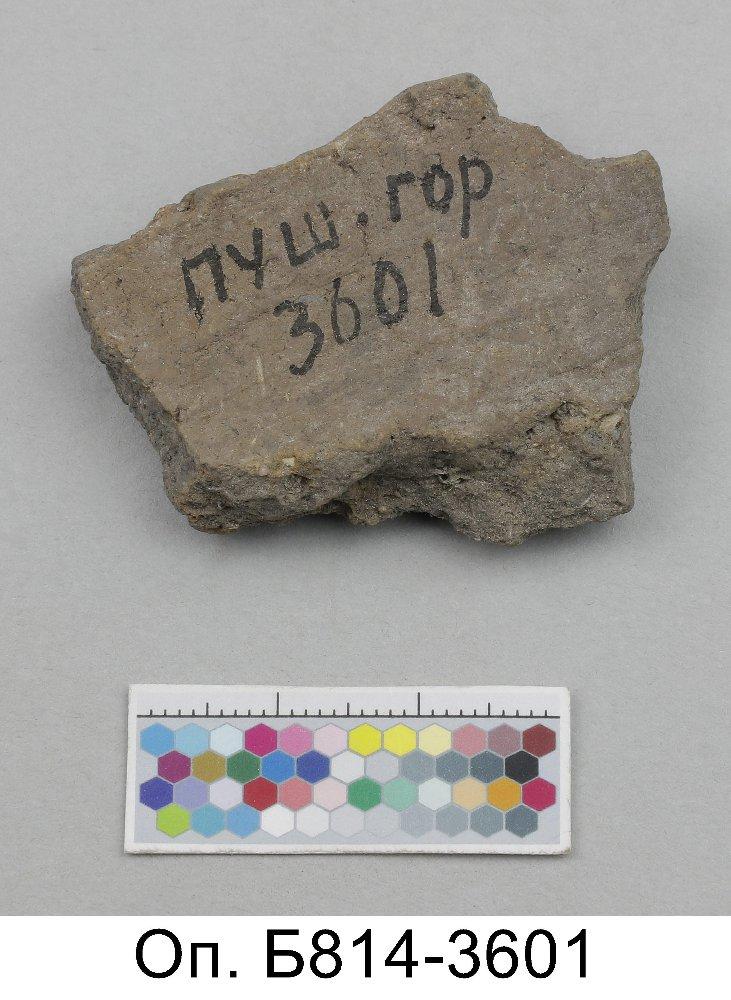 пуш. гор
3601
Оп. Б814-3601